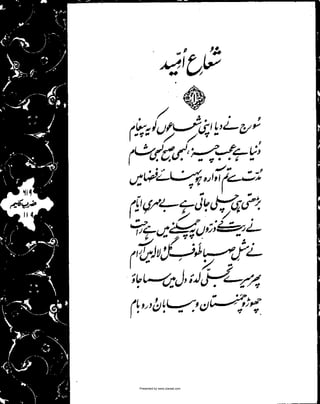 شعاعِ اُمّید
سُورج نے دیا اپنی شعاعوں کو یہ پیغام
دُنیا ہے عجب چیز، کبھی صبح کبھی شام
مُدّت سے تم آوارہ ہو پہنائے فضا میں
بڑھتی ہی چلی جاتی ہے بے مہریِ ایّام
نے ریت کے ذرّوں پہ چمکنے میں ہے راحت
نے مثلِ صبا طوفِ گُل و لالہ میں آرام
پھر میرے تجلّی کدۂ دل میں سما جاؤ
چھوڑو چمنستان و بیابان و در و بام
ضربِ کلیم
Presented by www.ziaraat.com